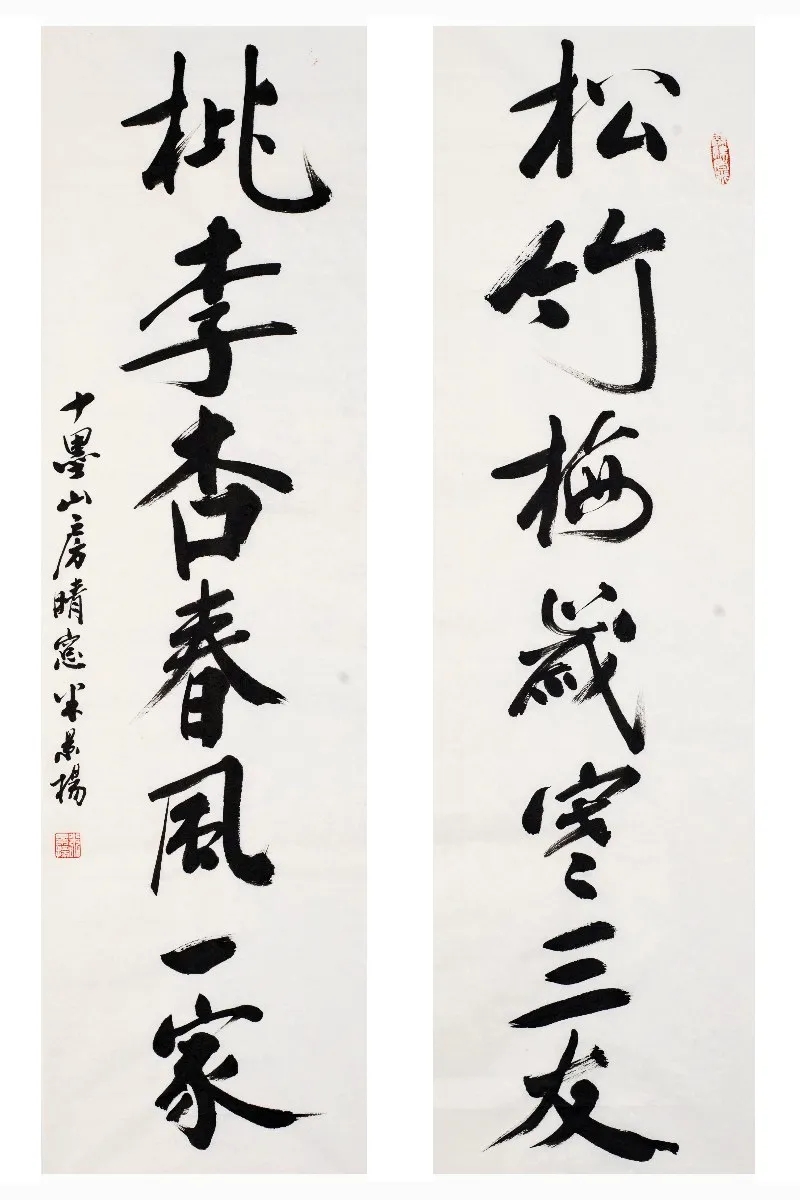 松竹梅歲寒三友
桃李杏春風一家
十墨山房晴窗米景揚